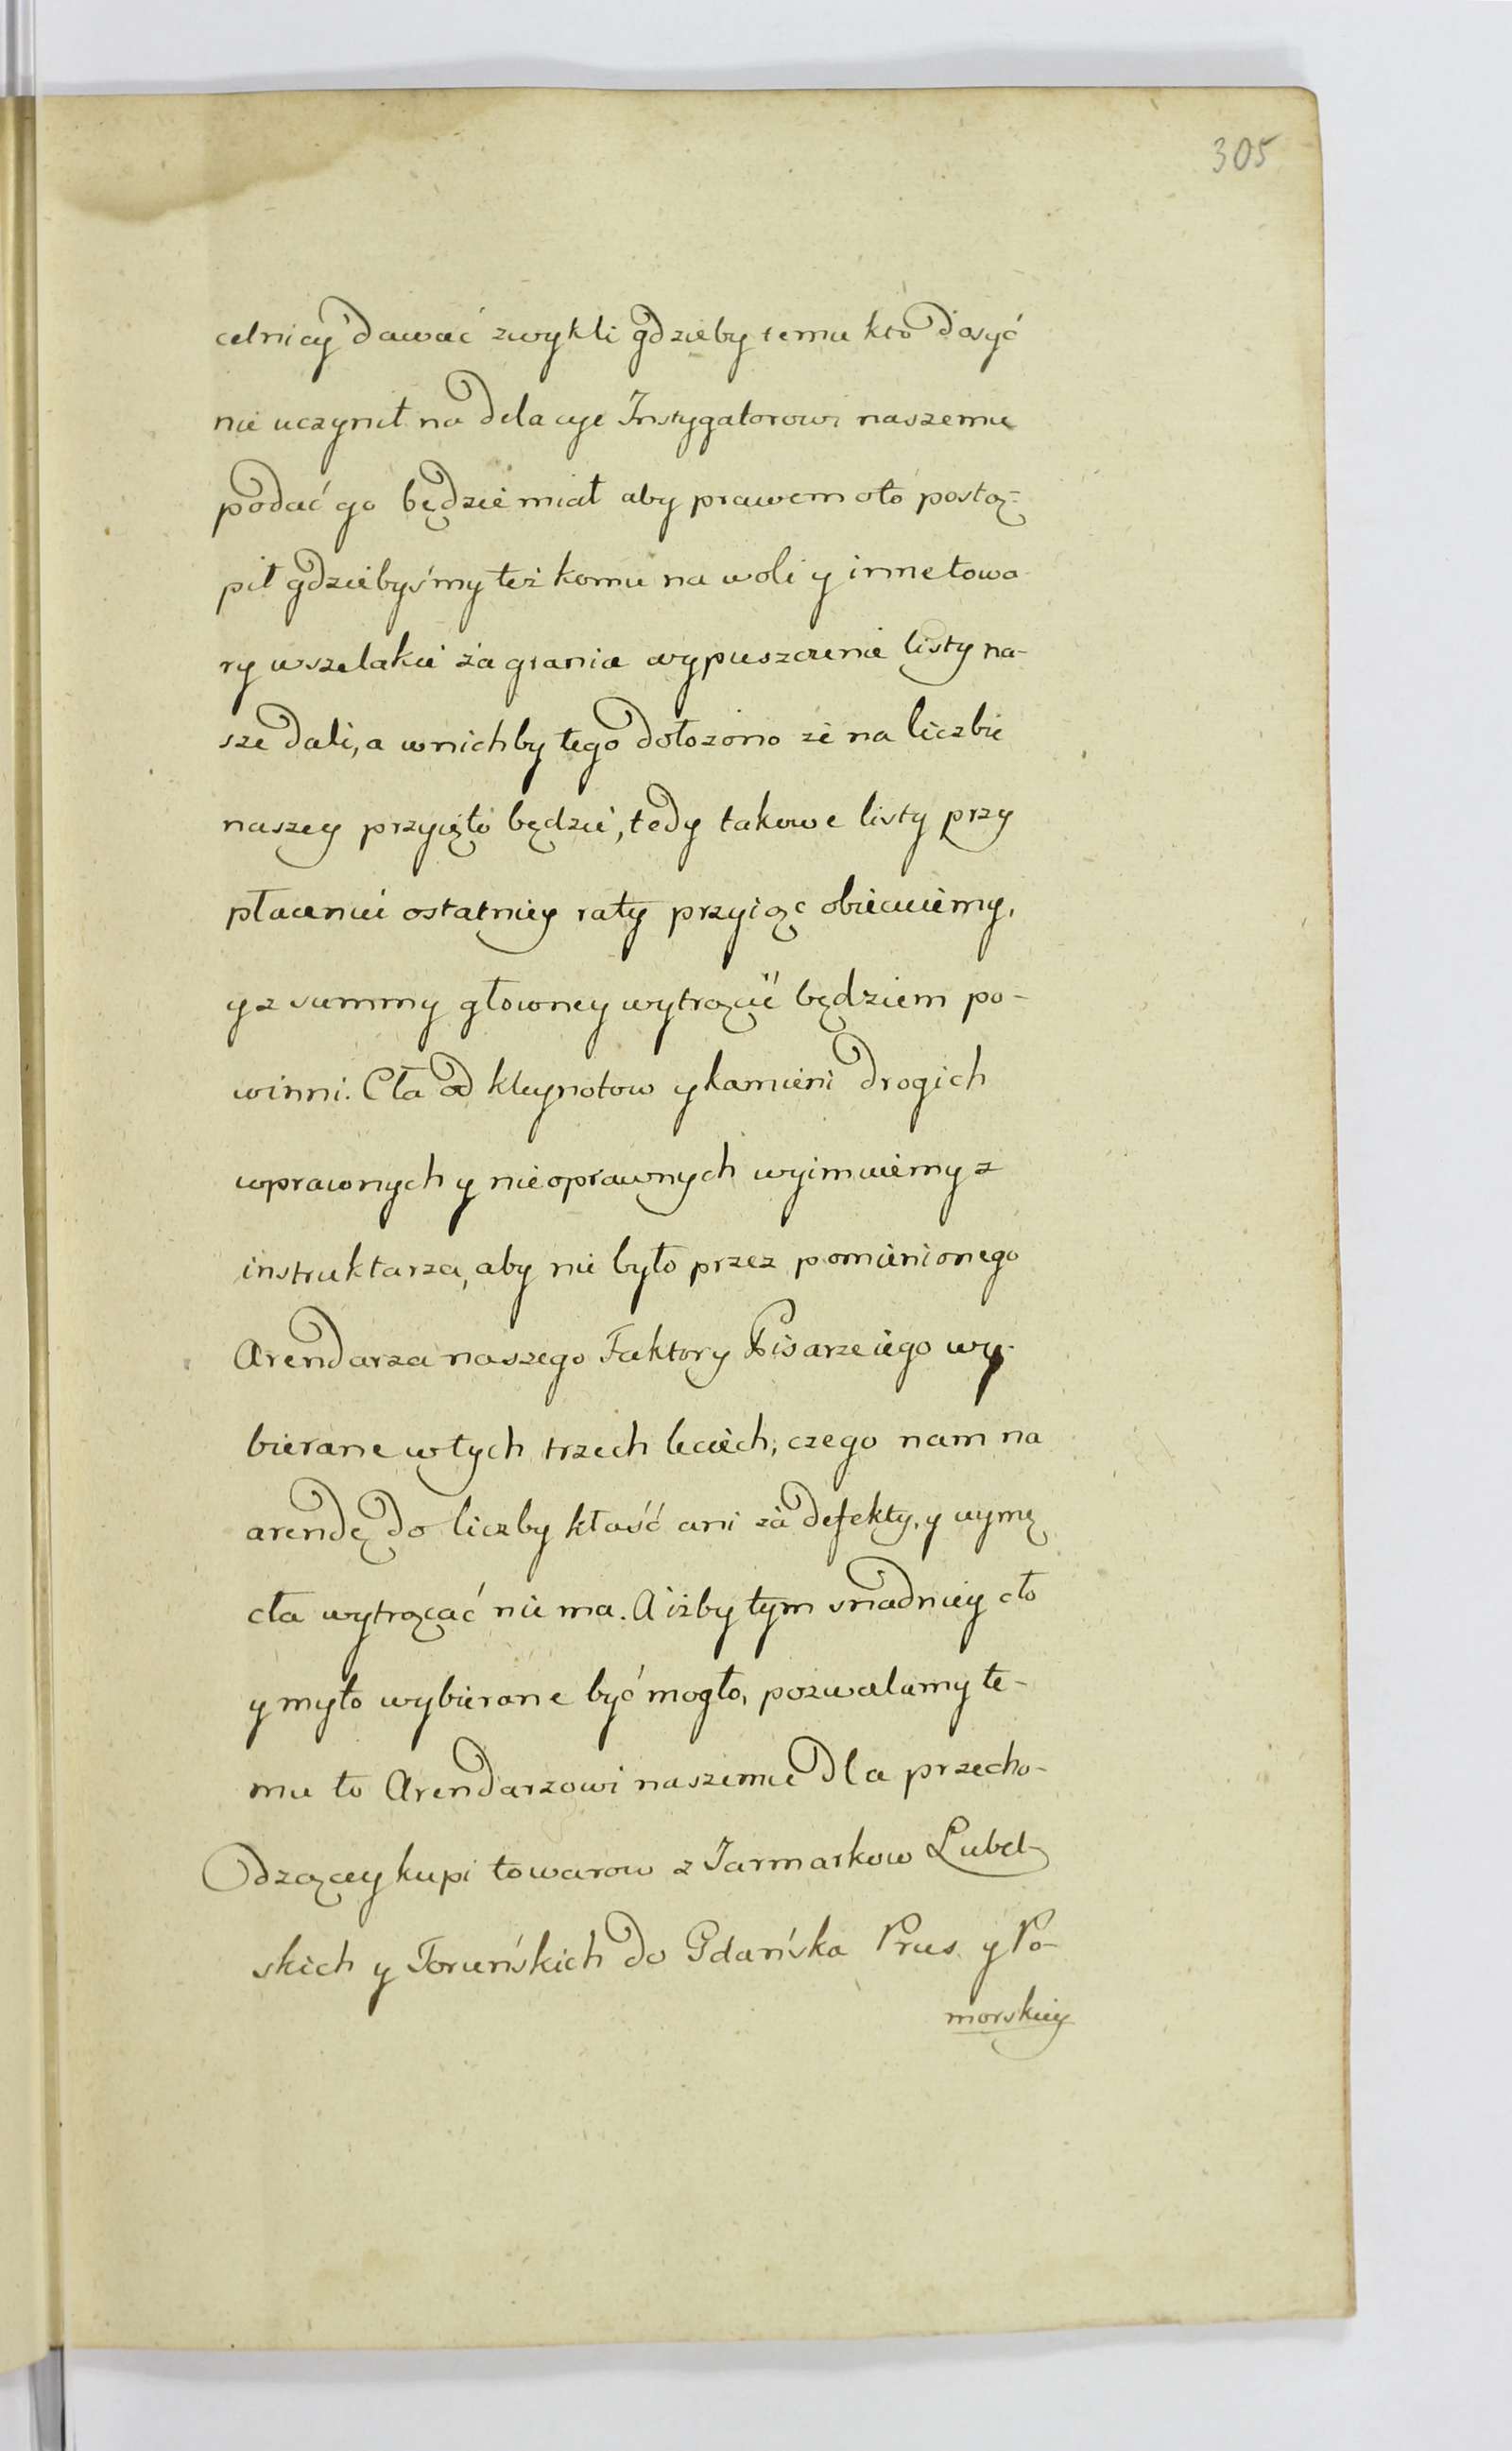 305
celnicy dawać zwykli gdzieby temu kto dosyć
nie uczynił na delacye Instygatorowi naszemu
podać go będzie miał aby prawem oto postą-
pił gdziebyśmy też komu na woli y inne towa-
ry wszelakie za granice wypuszczenie listy na-
sze dali, a w nichby tego dołożono że na liczbie
naszey przyięto będzie, tedy takowe listy przy
płaceniu ostatniey raty przyiąc obiecuiemy,
y z summy głowney wytrącić będziem po-
winni. Cła od kleynotow y kamieni drogich
wprawnych y nieoprawnych wyimuiemy z
instruktarza, aby nie było przez pomienionego
Arendarza naszego Faktory Pisarze iego wy-
bierane w tych trzech leciech, czego nam na
arendę do liczby kłaść ani za defekty, y wymę
cła wytrącać nie ma. A iżby tym snadniey cło
y myto wybierane być mogło, pozwalamy te-
mu to Arendarzowi naszemu dla przecho-
dzącey kupi towarow z Jarmarkow Lubel-
skich y Toruńskich do Gdańska Prus y Po-
morskiey